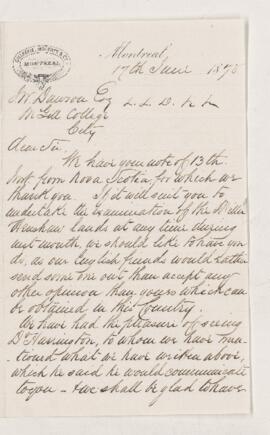 MONTREAL
Montreal,
17th June 1878
J W Dawson Esq L.L.D.
McGill College
City
Dear Sir,
We have your note of 13th
from Nova Scotia, for which we
thank you. If it will suit you to
undertake the examination of the
lands at any time during
next month, we should like to have you
do, as our English friends would rather
send some one out than accept any
other opinion than yours which can
be obtained in this Country.
We have had the pleasure of seeing
Dr Harrington, to whom we have men-
tioned what we have written above,
which he said he would communicate
to you - & we shall be glad to have